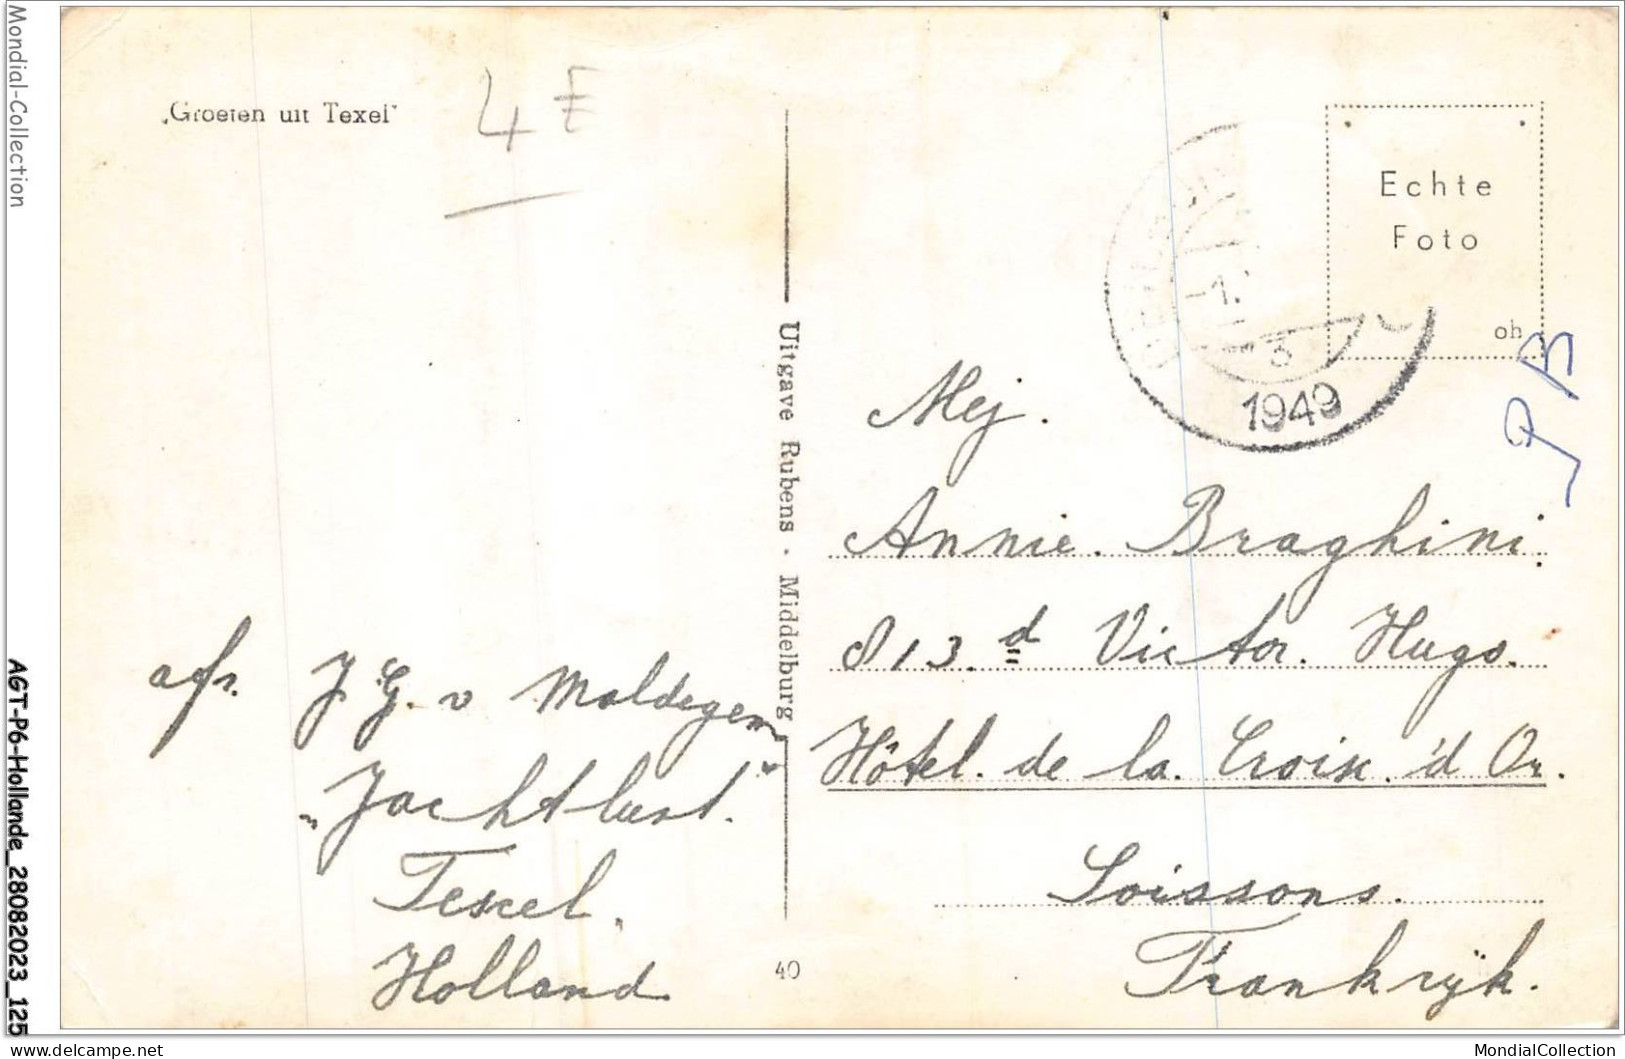 Mondial-Collection
AGT-P6-Hollande_28082023_125
„Groeten uit Texel"
4 E
afz. J. G. v Maldegem
„Jachtlust."
Texel.
Holland
Uitgave Rubens - Middelburg
40
-1.
1949
Echte
Foto
oh
Mej.
Annie. Braghini
8 13.d Victor. Hugo.
Hôtel. de la. Croix. 'd Or.
Soissons.
Frankrijk.
delcampe.net
MondialCollection